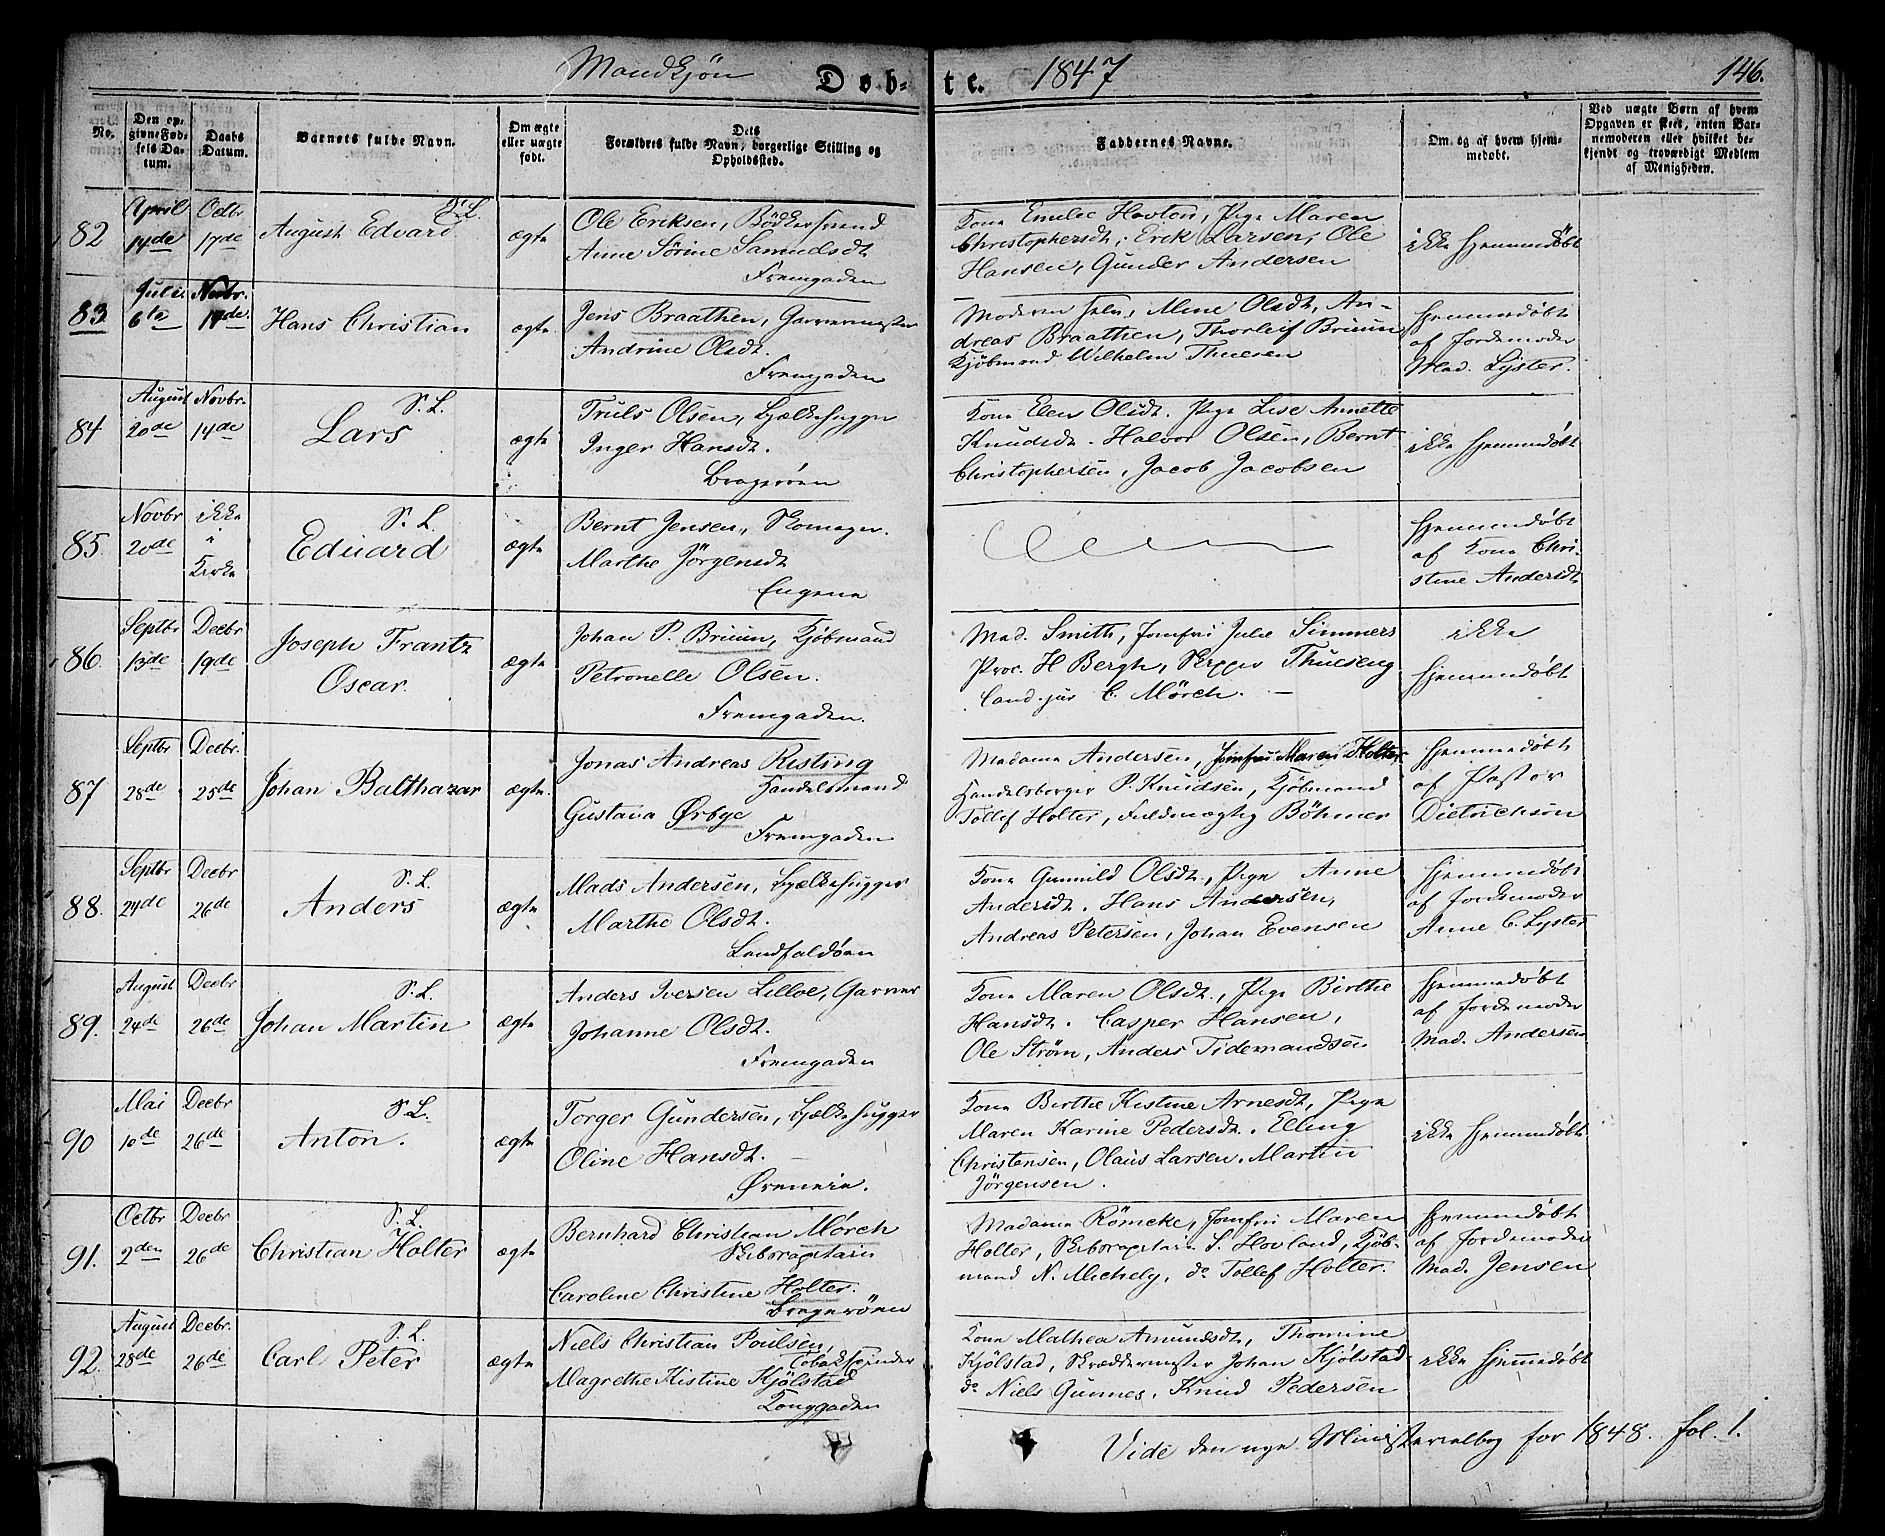 Mandkjøn Døbte. 1847 146.
No.
Den opgivne Fødsels Datum.
Daabs Datum.
Barnets fulde Navn.
Om ægte eller uægte født.
Forældres fulde Navn, borgerlige Stilling og Dets Opholdssted.
Faddernes Navne.
Om og af hvem hjemmedøbt.
Ved uægte Børn af hvem Opgaven er skeet, enten Barnemoderen eller hvilket bekjendt og troværdigt Medlem af Menigheden.
82 April 14de Octbr 17de August Edvard S. L. ægte
Ole Eriksen, Bødkersvend
Anne Sørine Samuelsdt
Fremgaden
Kone Emilie Hovton, Pige Maren
Christophersdt, Erik Larsen, Ole
Hansen, Gunder Andersen
ikke hjemmedøbt
83 Juli 6te Novbr. 14de Hans Christian ægte
Jens Braathen, Garvermester
Andrine Olsdt.
Fremgaden
Moderen selv, Mine Olsdt, An-
dreas Braathen, Thorleif Bruun
Kjøbmand Wilhelm Thuesen
hjemmedøbt
af Jordemoder
Mad. Lyster.
84 August 20de Novbr. 14de Lars S. L. ægte
Truls Olsen, Bjælkehugger
Inger Hansdt.
Bragerøen
Kone Elen Olsdt. Pige Lise Annette
Knudsdt. Halvor Olsen, Bernt
Christophersen, Jacob Jacobsen
ikke hjemmedøbt
85. Novbr 20de ikke i Kirke Eduard S. L. ægte
Bernt Jensen, Skomager.
Marthe Jörgensdt
Eugene
hjemmedøbt
af Kone Chri-
stine Andersdt
86. Septbr 13de Decbr 19de Joseph Frantz
Oscar. ægte
Johan P. Bruun, Kjøbmand
Petronelle Olsen.
Fremgaden.
Mad. Smith, Jomfru Julie Simmers
Proc. H Bergh, Skipper Thueseng
Cand. jur C. Mörch. —
ikke
hjemmedøbt
87 Septbr 28de Decbr. 25de Johan Balthazar ægte.
Jonas Andreas Risting
Handelsmand
Gustava Ørbye
Fremgaden
Madame Andersen, Jomfru Maren Holter
Handelsborger P. Knudsen, Kjøbmand
Tollef Holter, Fuldmægtig Böhmer
hjemmedøbt
af Pastor
Dietrichson
88. Septbr 24de Decbr 26de Anders S. L. ægte
Mads Andersen, Bjælkehugger
Marthe Olsdt.
Landfaldøen
Kone Gunnild Olsdt., Pige Anne
Andersdt. Hans Andersen,
Andreas Petersen, Johan Evensen
hjemmedøbt
af Jordemoder
Anne C. Lyster
89. August 24de Decbr 26de Johan Martin S. L. ægte
Anders Iversen Lilloe, Garver
Johanne Olsdt.
Fremgaden
Kone Maren Olsdt., Pige Birthe
Hansdt. Casper Hansen,
Ole Strøm, Anders Tidemandsen
hjemmedøbt
af Jordemoder
Mad. Andersen
90 Mai 10de Decbr 26de Anton. S. L. ægte
Torger Gundersen, Bjælkehugger
Oline Hansdt. —
Øreneie.
Kone Birthe Kistine Arnesdt, Pige
Maren Karine Pedersdt. Elling
Christensen, Olaus Larsen. Martin
Jörgensen.
ikke hjemmedøbt
91. Octbr 2den Decbr 26de Christian Holter S. L. ægte
Bernhard Christian Mörch
Skibscapitain
Caroline Christine Holter.
Bragerøen
Madame Römcke, Jomfru Maren
Holter, Skibscapitain S. Hovland, Kjøb-
mand N. Michely, do Tollef Holter.
hjemmedøbt
af Jordemoder
Mad. Jensen
92. August 28de Decbr. 26de Carl Peter S. L. ægte
Niels Christian Poulsen,
Tobakspinder
Magrethe Kistine Kjölstad
Konggaden
Kone Mathea Amundsdt, Thomine
Kjölstad, Skræddermester Johan Kjölstad
do Niels Gunnes, Knud Pedersen
ikke hjemmedøbt
Vide den nye Ministerialbog for 1848. fol. 1.